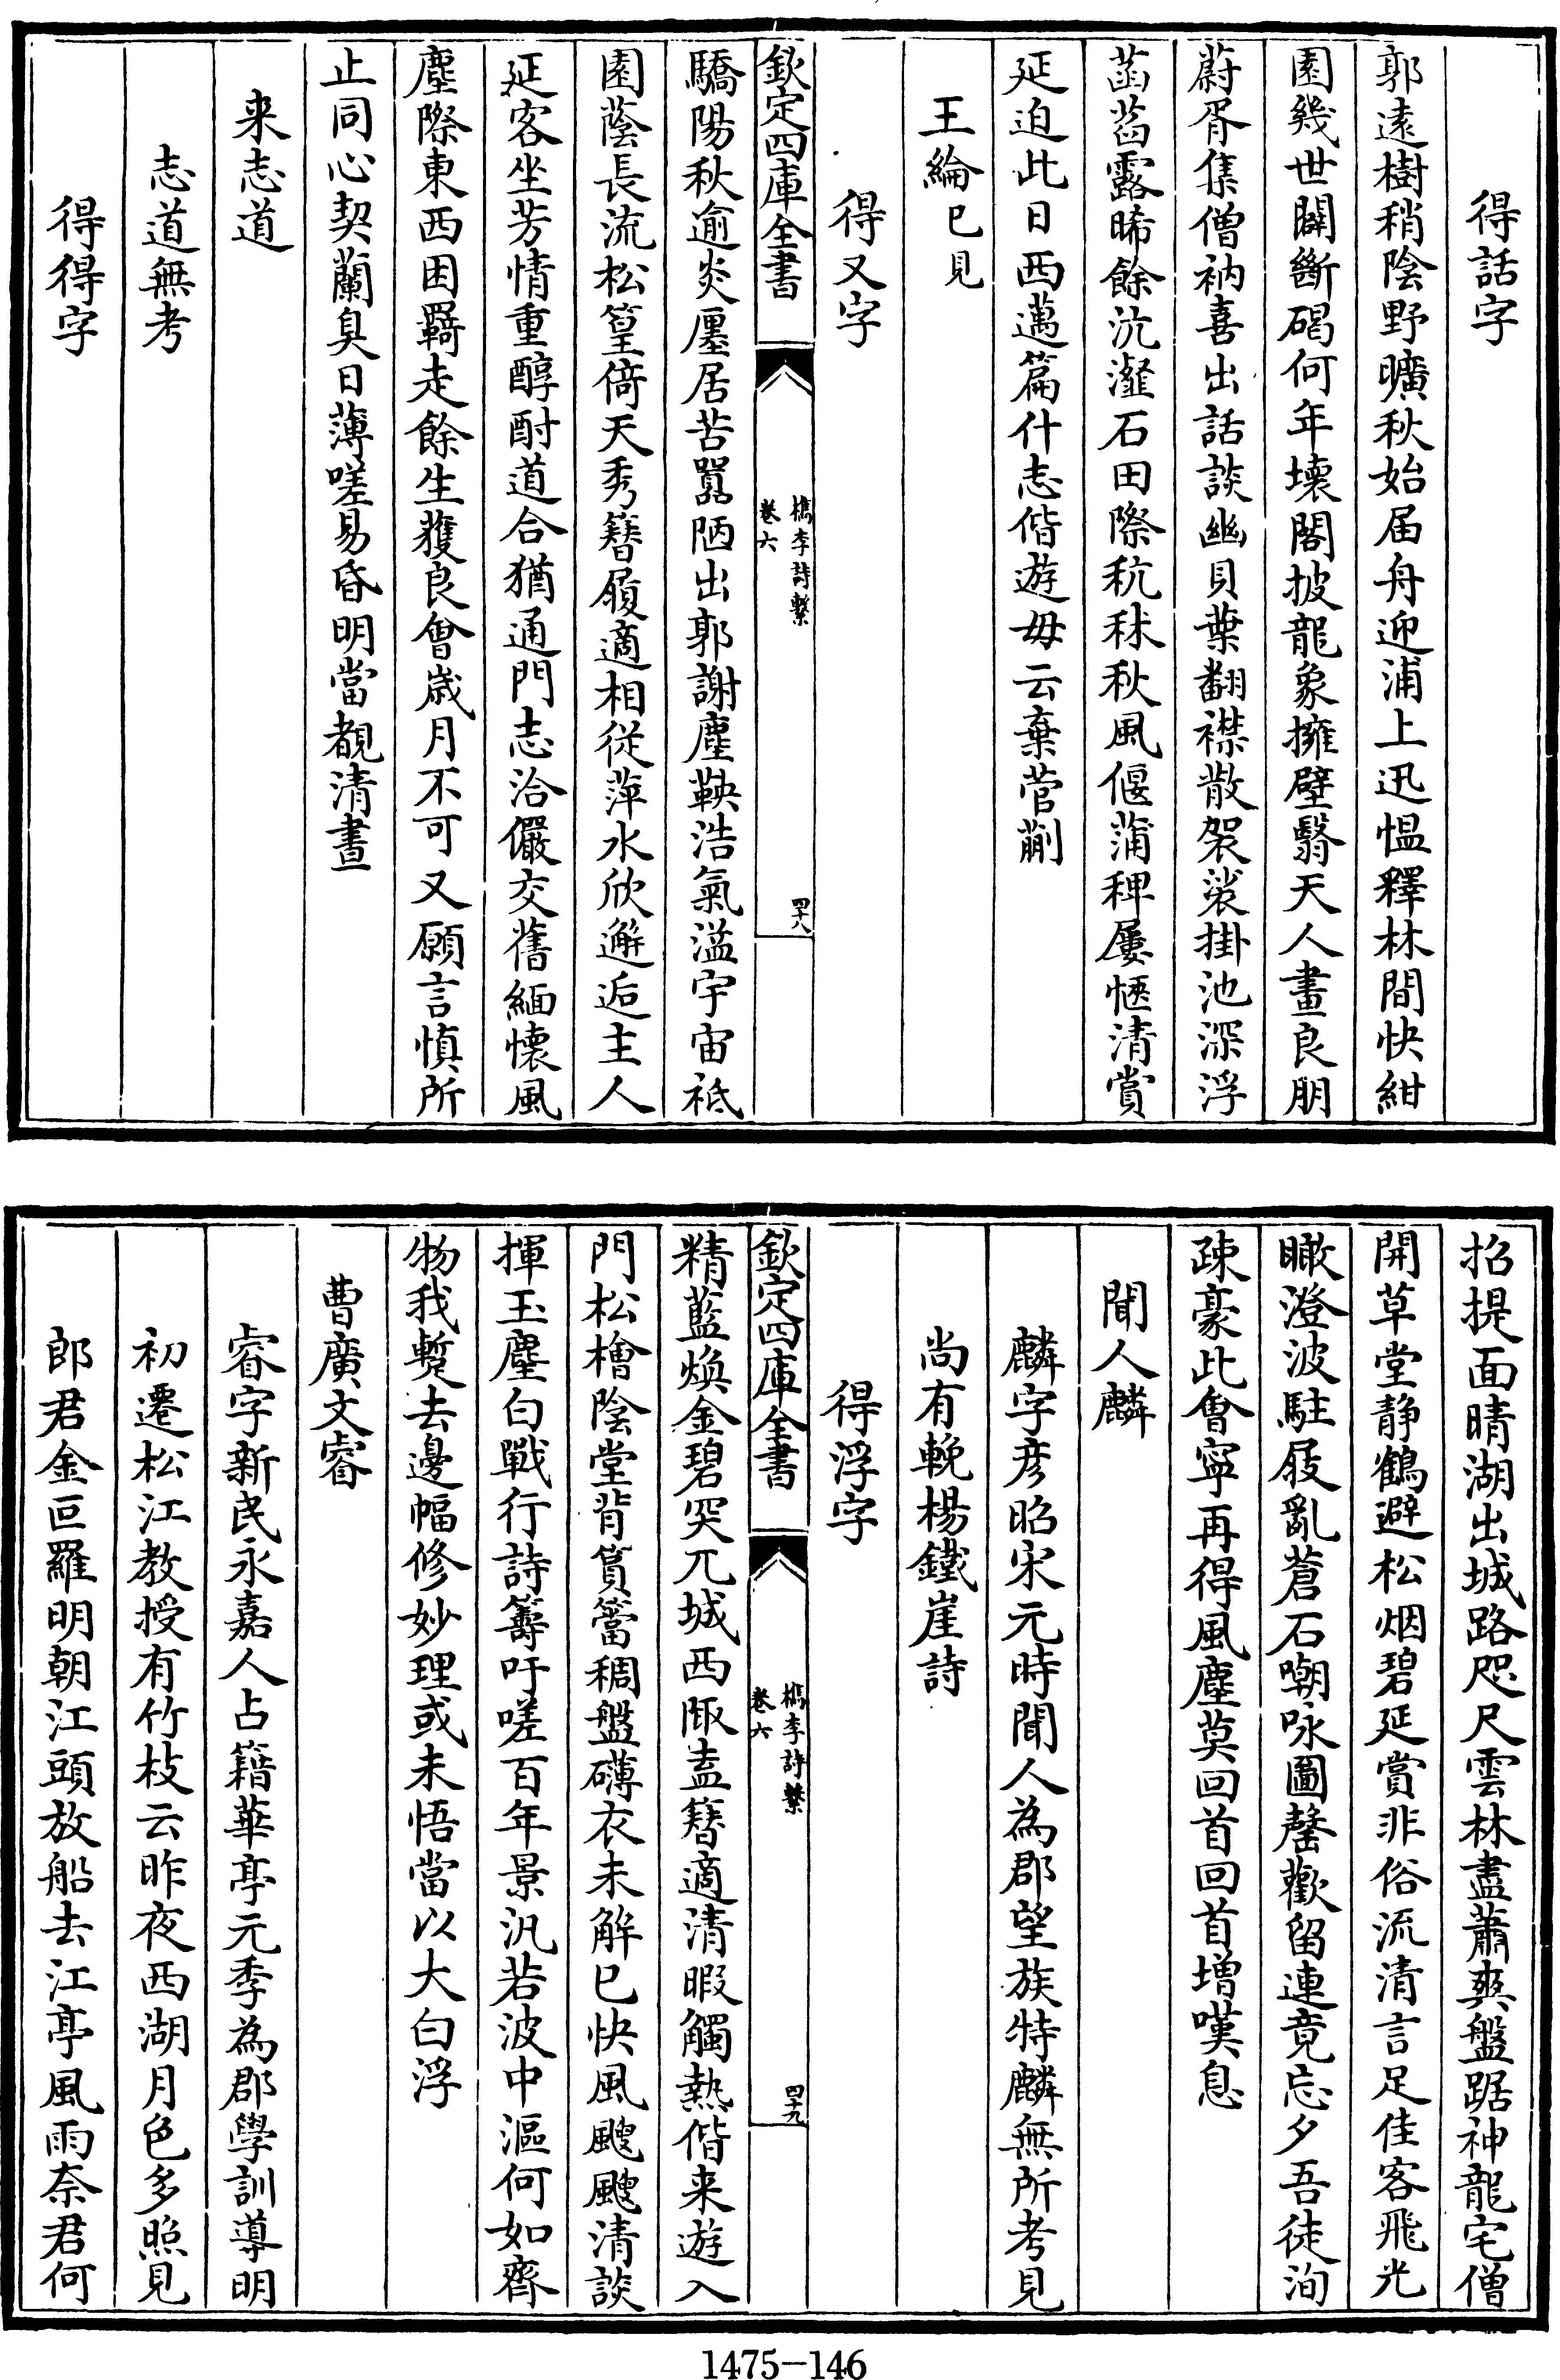 得話字
郭遠樹稍陰野曠秋始届舟迎浦上迅愠釋林間快紺
園幾世闢斷碣何年壞閣披龍象擁壁翳天人畫良朋
蔚胥集僧衲喜出話談幽貝葉翻襟散袈裟掛池深浮
菡萏露晞餘沆瀣石田際秔秫秋風偃蒲稗屢愜清賞
延迫此日西邁篇什志偕遊毋云棄菅蒯
王綸已見
得又字
欽定四庫全書
檇李詩繫
卷六
四十八
驕陽秋逾炎廛居苦嚣陋出郭謝塵鞅浩氣溢宇宙祗
園蔭長流松篁倚天秀簪履適相從萍水欣邂逅主人
延客坐芳情重醇酎道合猶通門志洽儼交舊緬懷風
塵際東西困羇走餘生獲良會歲月不可又願言慎所
止同心契蘭臭日薄嗟易昏明當覩清晝
来志道
志道無考
得得字
招提面晴湖出城路咫尺雲林盡蕭爽盤踞神龍宅僧
開草堂静鶴避松烟碧延賞非俗流清言足佳客飛光
瞰澄波駐屐亂蒼石嘲咏圖罄歡留連竟忘夕吾徒洵
疎豪此會寧再得風塵莫回首回首增嘆息
聞人麟
麟字彦昭宋元時聞人為郡望族特麟無所考見
尚有輓楊鐵崖詩
得浮字
欽定四庫全書
檇李詩繫
卷六
四十九
精藍煥金碧突兀城西陬盍簪適清暇觸熱偕来遊入
門松檜陰堂背篔簹稠盤礴衣未解已快風颼颼清談
揮玉麈白戰行詩籌吁嗟百年景汎若波中漚何如齊
物我蹔去邊幅修妙理或未悟當以大白浮
曹廣文睿
睿字新民永嘉人占籍華亭元季為郡學訓導明
初遷松江教授有竹枝云昨夜西湖月色多照見
郎君金叵羅明朝江頭放船去江亭風雨奈君何
1475-146